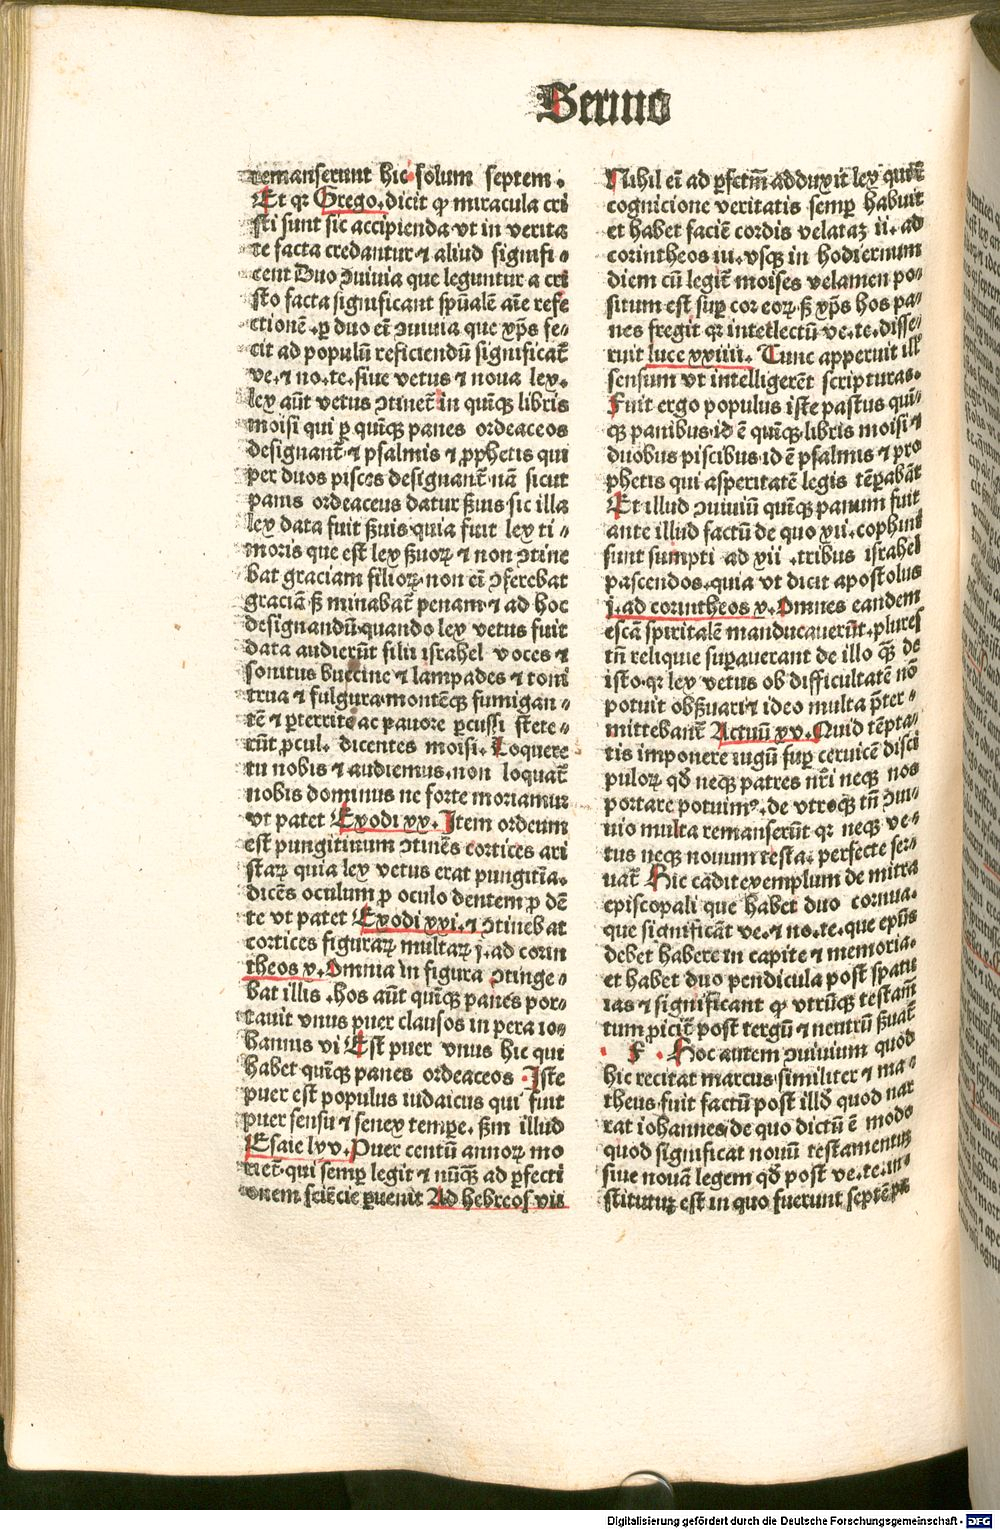 Sermo
remanserunt hic solum septem.
Et qꝛ Grego. dicit ꝙ miracula cri
sti sunt sic accipienda vt in verita
te facta credantur ⁊ aliud signifi-
cent Duo ↄuiuia que leguntur a cri
sto facta significant spūalē aīe refe
ctionē. ꝑ duo eī ↄuiuia que xp̄s fe-
cit ad populū reficiendū significat̄
ve. ⁊ no. te. siue vetus ⁊ noua lex.
lex aūt vetus ↄtinet̄ in quīqꝫ libris
moisi qui ꝑ quīqꝫ panes ordeaceos
designant̄ ⁊ psalmis ⁊ ꝓphetis qui
per duos pisces designant̄ nā sicut
panis ordeaceus datur ẜuis sic illa
lex data fuit ẜuis quia fuit lex ti-
moris que est lex ẜuoꝝ ⁊ non ↄtine
bat graciam filioꝝ. non eī ↄferebat
graciā ẜꝫ minabat̄ penam ⁊ ad hoc
designandū quando lex vetus fuit
data audierūt filii israhel voces ⁊
sonitus buccine ⁊ lampades ⁊ toni
trua ⁊ fulgura. montēqꝫ fumigan-
tē ⁊ ꝑterriti ac pauore ꝑcussi stete-
rūt ꝓcul. dicentes moisi. Loquere
tu nobis ⁊ audiemus. non loquat̄
nobis dominus ne forte moriamur
vt patet Exodi xx. Item ordeum
est pungitiuum ↄtinēs cortices ari
staꝝ quia lex vetus erat pungitīa.
dicēs oculum ꝓ oculo dentem ꝓ dē
te vt patet Exodi xxi. ⁊ ↄtinebat
cortices figuraꝝ multaꝝ j. ad corin
theos x. Omnia in figura ↄtinge-
bat illis. hos aūt quīqꝫ panes por-
tauit vnus puer clausos in pera io-
hannis vi Est puer vnus hic qui
habet quīqꝫ panes ordeaceos. Iste
puer est populus iudaicus qui fuit
puer sensu ⁊ senex tempe. ẜm illud
Esaie lxv. Puer centū annoꝝ mo
riet̄. qui semꝑ legit ⁊ nūqꝫ ad ꝑfecti
onem sciēcie ꝑuenit Ad hebreos vii
Nihil eī ad ꝑfctm̄ adduxit lex
cognicione veritatis semꝑ habuit
et habet faciē cordis velataꝫ ii. ad
corintheos iii. vsqꝫ in hodiernum
diem cū legit̄ moises velamen po-
situm est suꝑ cor eoꝝ. ẜꝫ xp̄s hos pa-
nes fregit qꝛ intellectū ve. te. disse-
ruit luce xxiiii. Tunc apperuit ill'
sensum vt intelligerēt scripturas.
Fuit ergo populus iste pastus quī-
qꝫ panibus. id ē quīqꝫ libris moisi ⁊
duobus piscibus id ē psalmis ⁊ pro
phetis qui asperitatē legis tēꝑabāt
Et illud ↄuiuiū quīqꝫ panum fuit
ante illud factū de quo xii. cophini
sunt sumpti ad xii. tribus israhel
pascendos. quia vt dicit apostolus
j. ad corintheos x. Omnes eandem
escā spiritalē manducauerūt. plures
tn̄ reliquie suꝑauerant de illo qꝫ de
isto. qꝛ lex vetus ob difficultatē nō
potuit obẜuari ⁊ ideo multa p̄ter-
mittebant̄ Actuū xv. Quid tēpta-
tis imponere iugū suꝑ ceruicē disci
puloꝝ qd̄ neqꝫ patres nr̄i neqꝫ nos
portare potuimꝰ. de vtroqꝫ tn̄ ↄui-
uio multa remanserūt qꝛ neqꝫ ve-
tus neqꝫ nouum testa. perfecte ser-
uat̄ Hic cadit exemplum de mitra
episcopali que habet duo cornua.
que significāt ve. ⁊ no. te. que ep̄us
debet habere in capite ⁊ memoria.
et habet duo pendicula post spatu
las ⁊ significant ꝙ vtrūqꝫ testam̄
tum ꝓicit̄ post tergū ⁊ neutrū ẜuat̄
. F . Hoc autem ↄuiuium quod
hic recitat marcus. similiter ⁊ ma-
theus. fuit factū post illd̄ quod nar
rat iohannes de quo dictū ē modo
quod significat nouū testamentum
siue nouā legem qd̄ post ve. te. in-
stitutuꝫ est in quo fuerunt septē
Digitalisierung gefördert durch die Deutsche Forschungsgemeinschaft - DFG